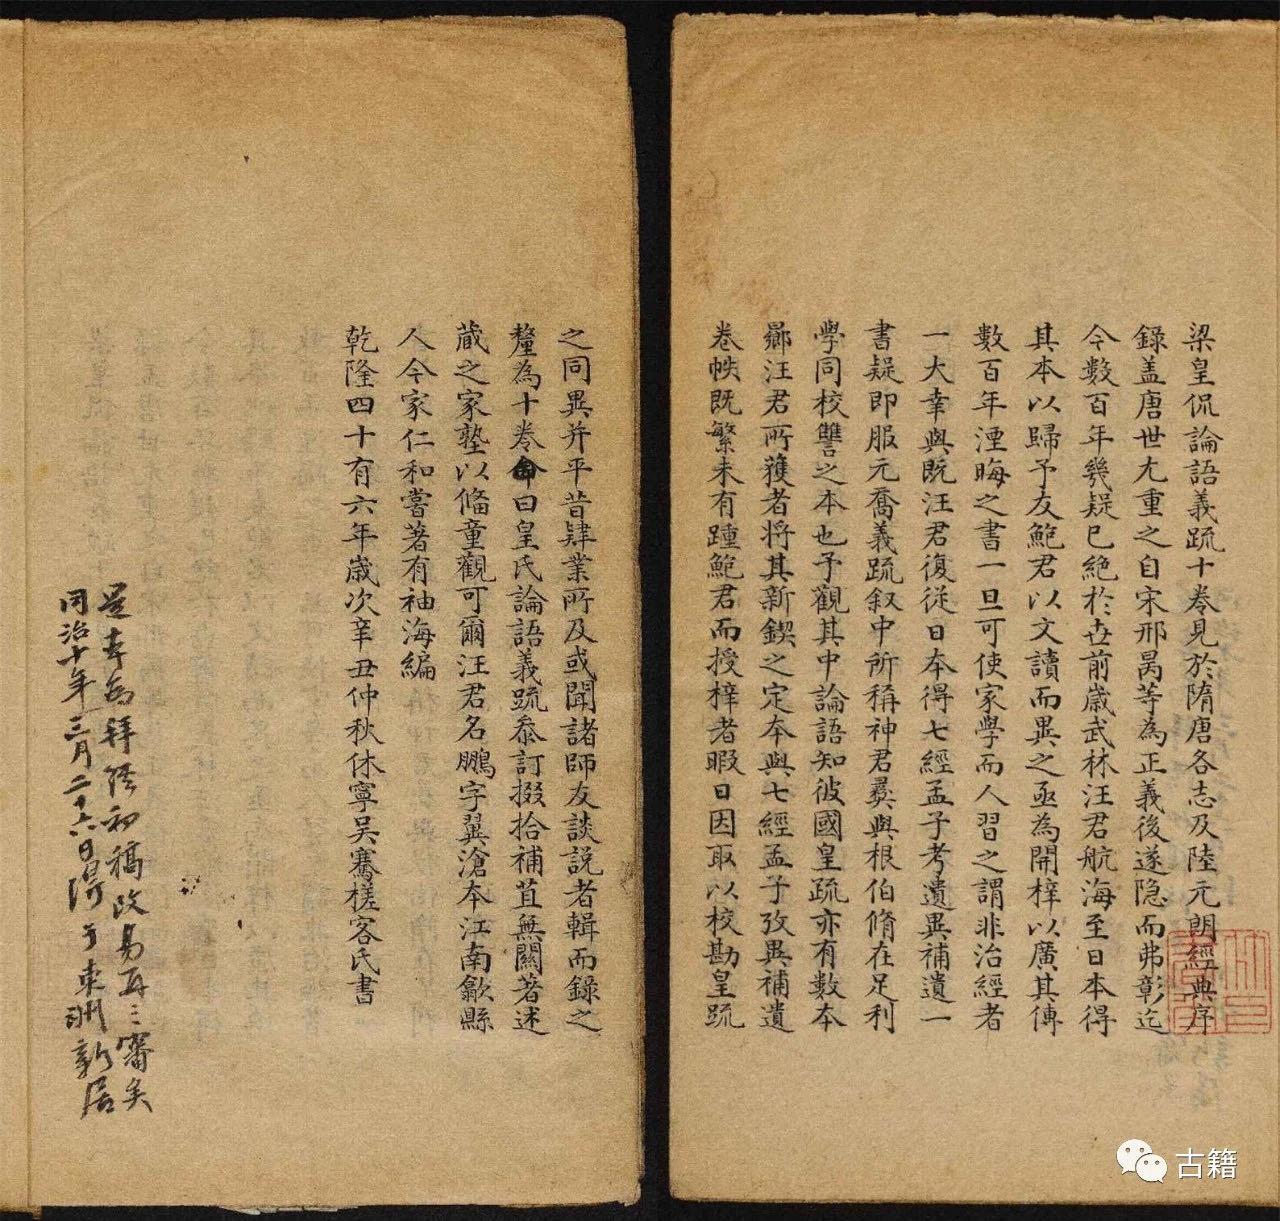 梁皇侃論語義疏十卷見於隋唐各志及陸元朗經典序
錄盖唐世尤重之自宋邢昺等為正義後遂隐而弗彰迄
今數百年幾疑已絕於世前歲武林汪君航海至日本得
其本以歸予友鮑君以文讀而異之亟為開梓以廣其傳
數百年湮晦之書一旦可使家學而人習之謂非治經者
一大幸與既汪君復從日本得七經孟子考遺異補遺一
書疑即服元喬義疏叙中所稱神君彛與根伯脩在足利
學同校讐之本也予觀其中論語知彼國皇疏亦有數本
鄉汪君所獲者将其新鍥之定本與七經孟子攷異補遺
卷帙既繁未有踵鮑君而授梓者暇日因取以校勘皇疏
之同異并平昔肄業所及或聞諸師友談說者輯而錄之
釐為十卷命曰皇氏論語義疏叅訂掇拾補苴無關著述
蔵之家塾以偹童觀可爾汪君名鵬字翼滄本江南歙縣
人今家仁和嘗著有袖海編
乾隆四十有六年歲次辛丑仲秋休寧吳騫槎客氏書
是本為拜經初稿改易再三審矣
同治十年三月二十六日得于東洲新居
古籍